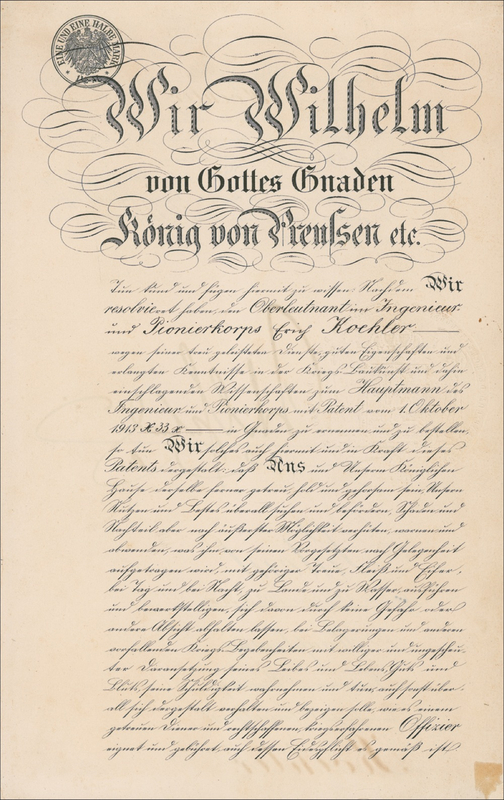 EINE UND EINE HALBE MARK
Wir Wilhelm
von Gottes Gnaden
König von Preussen etc.
Tun kund und fügen hiermit zu wissen: Nachdem Wir
resolviret haben, den Oberleutnant im Ingenieur-
und Pionierkorps Erich Koehler
wegen seiner treu geleisteten Dienste, guten Eigenschaften und
erlangten Kenntnisse in der Kriegs-Baukunst und dahin
einschlagenden Wissenschaften zum Hauptmann des
Ingenieur und Pionierkorps mit Patent vom 1. Oktober
1913 X 33 x in Gnaden zu ernennen und zu bestellen,
so tun Wir solches auch hiermit und in Kraft dieses
Patents dergestalt, daß Uns und Unserm Königlichen
Hause derselbe ferner getreu, hold und gehorsam sein, Unsern
Nutzen und Bestes überall suchen und befördern, Schaden und
Nachteil aber nach äußerster Möglichkeit verhüten, warnen und
abwenden, was ihm von seinen Vorgesetzten nach Gelegenheit
aufgetragen wird, mit gehöriger Treue, Fleiß und Eifer,
bei Tag und bei Nacht, zu Lande und zu Wasser, ausführen
und bewerkstelligen, sich davon durch keine Gefahr oder
andere Absicht abhalten lassen, bei Belagerungen und anderen
vorfallenden Kriegs-Begebenheiten mit williger und ungescheu-
ter Daransetzung seines Leibes und Lebens, Guts und
Bluts seine Schuldigkeit wahrnehmen und tun, auch sonst über-
all sich dergestalt verhalten und bezeigen solle, wie es einem
getreuen Diener und rechtschaffenen, kriegserfahrenen Offizier
eignet und gebührt, auch dessen Eidespflicht es gemäß ist